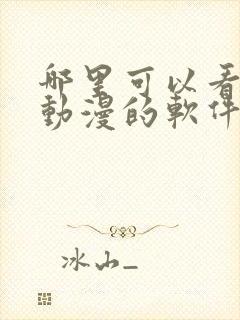 哪里可以看
動漫的軟件
冰山_